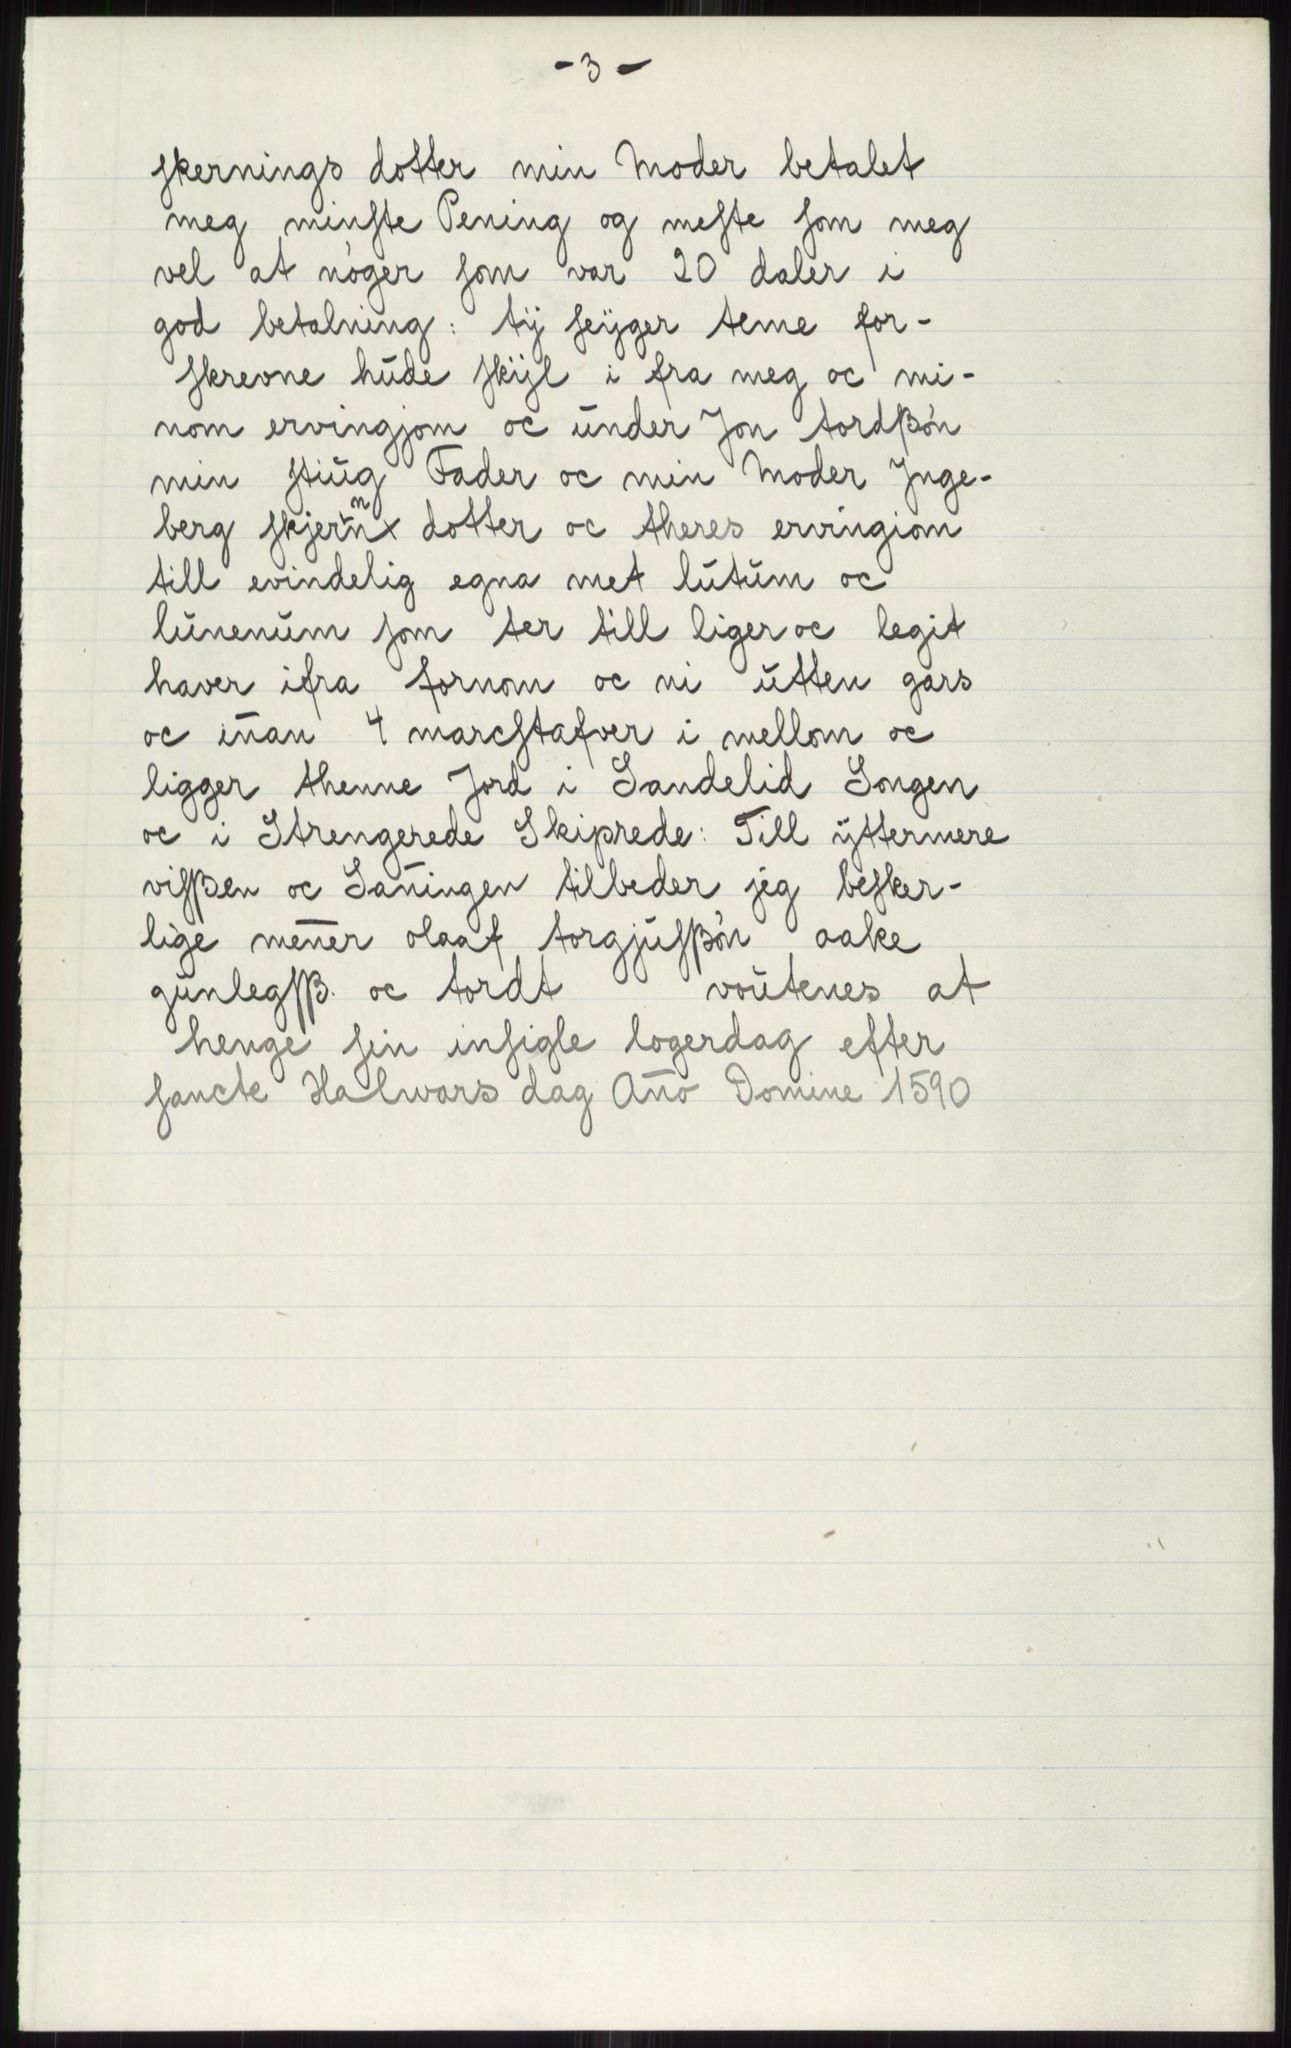 - 3 -
skernings dotter min Moder betalet
meg minste Pening og meste som meg
vel at nøger som var 20 daler i
god betalning: tÿ seÿger teme for-
skrevne hūde skÿl i fra meg oc mi-
nom ervingjom oc ūnder Jon tordßøn
min stiūg Fader oc min Moder Inge-
berg skjernn dotter oc theres ervingiom
till evindelig egna met lūtūm oc
lūnenūm som ter till liger oc legit
haver ifra fornom oc ni ūtten gars
oc in̄an 4 marcstafver i mellom oc
ligger thenne Jord i Sandelid Songen
oc i Strengerede Skiprede: Till ÿttermere
visßen oc San̄ingen tilbeder jeg besker-
lige men̄er olaaf torgjūsßøn aake
gūnlegsß. oc tordt voūtenes at
henge sin insigle logerdag efter
sancte Halwars dag An̄o Domine 1590